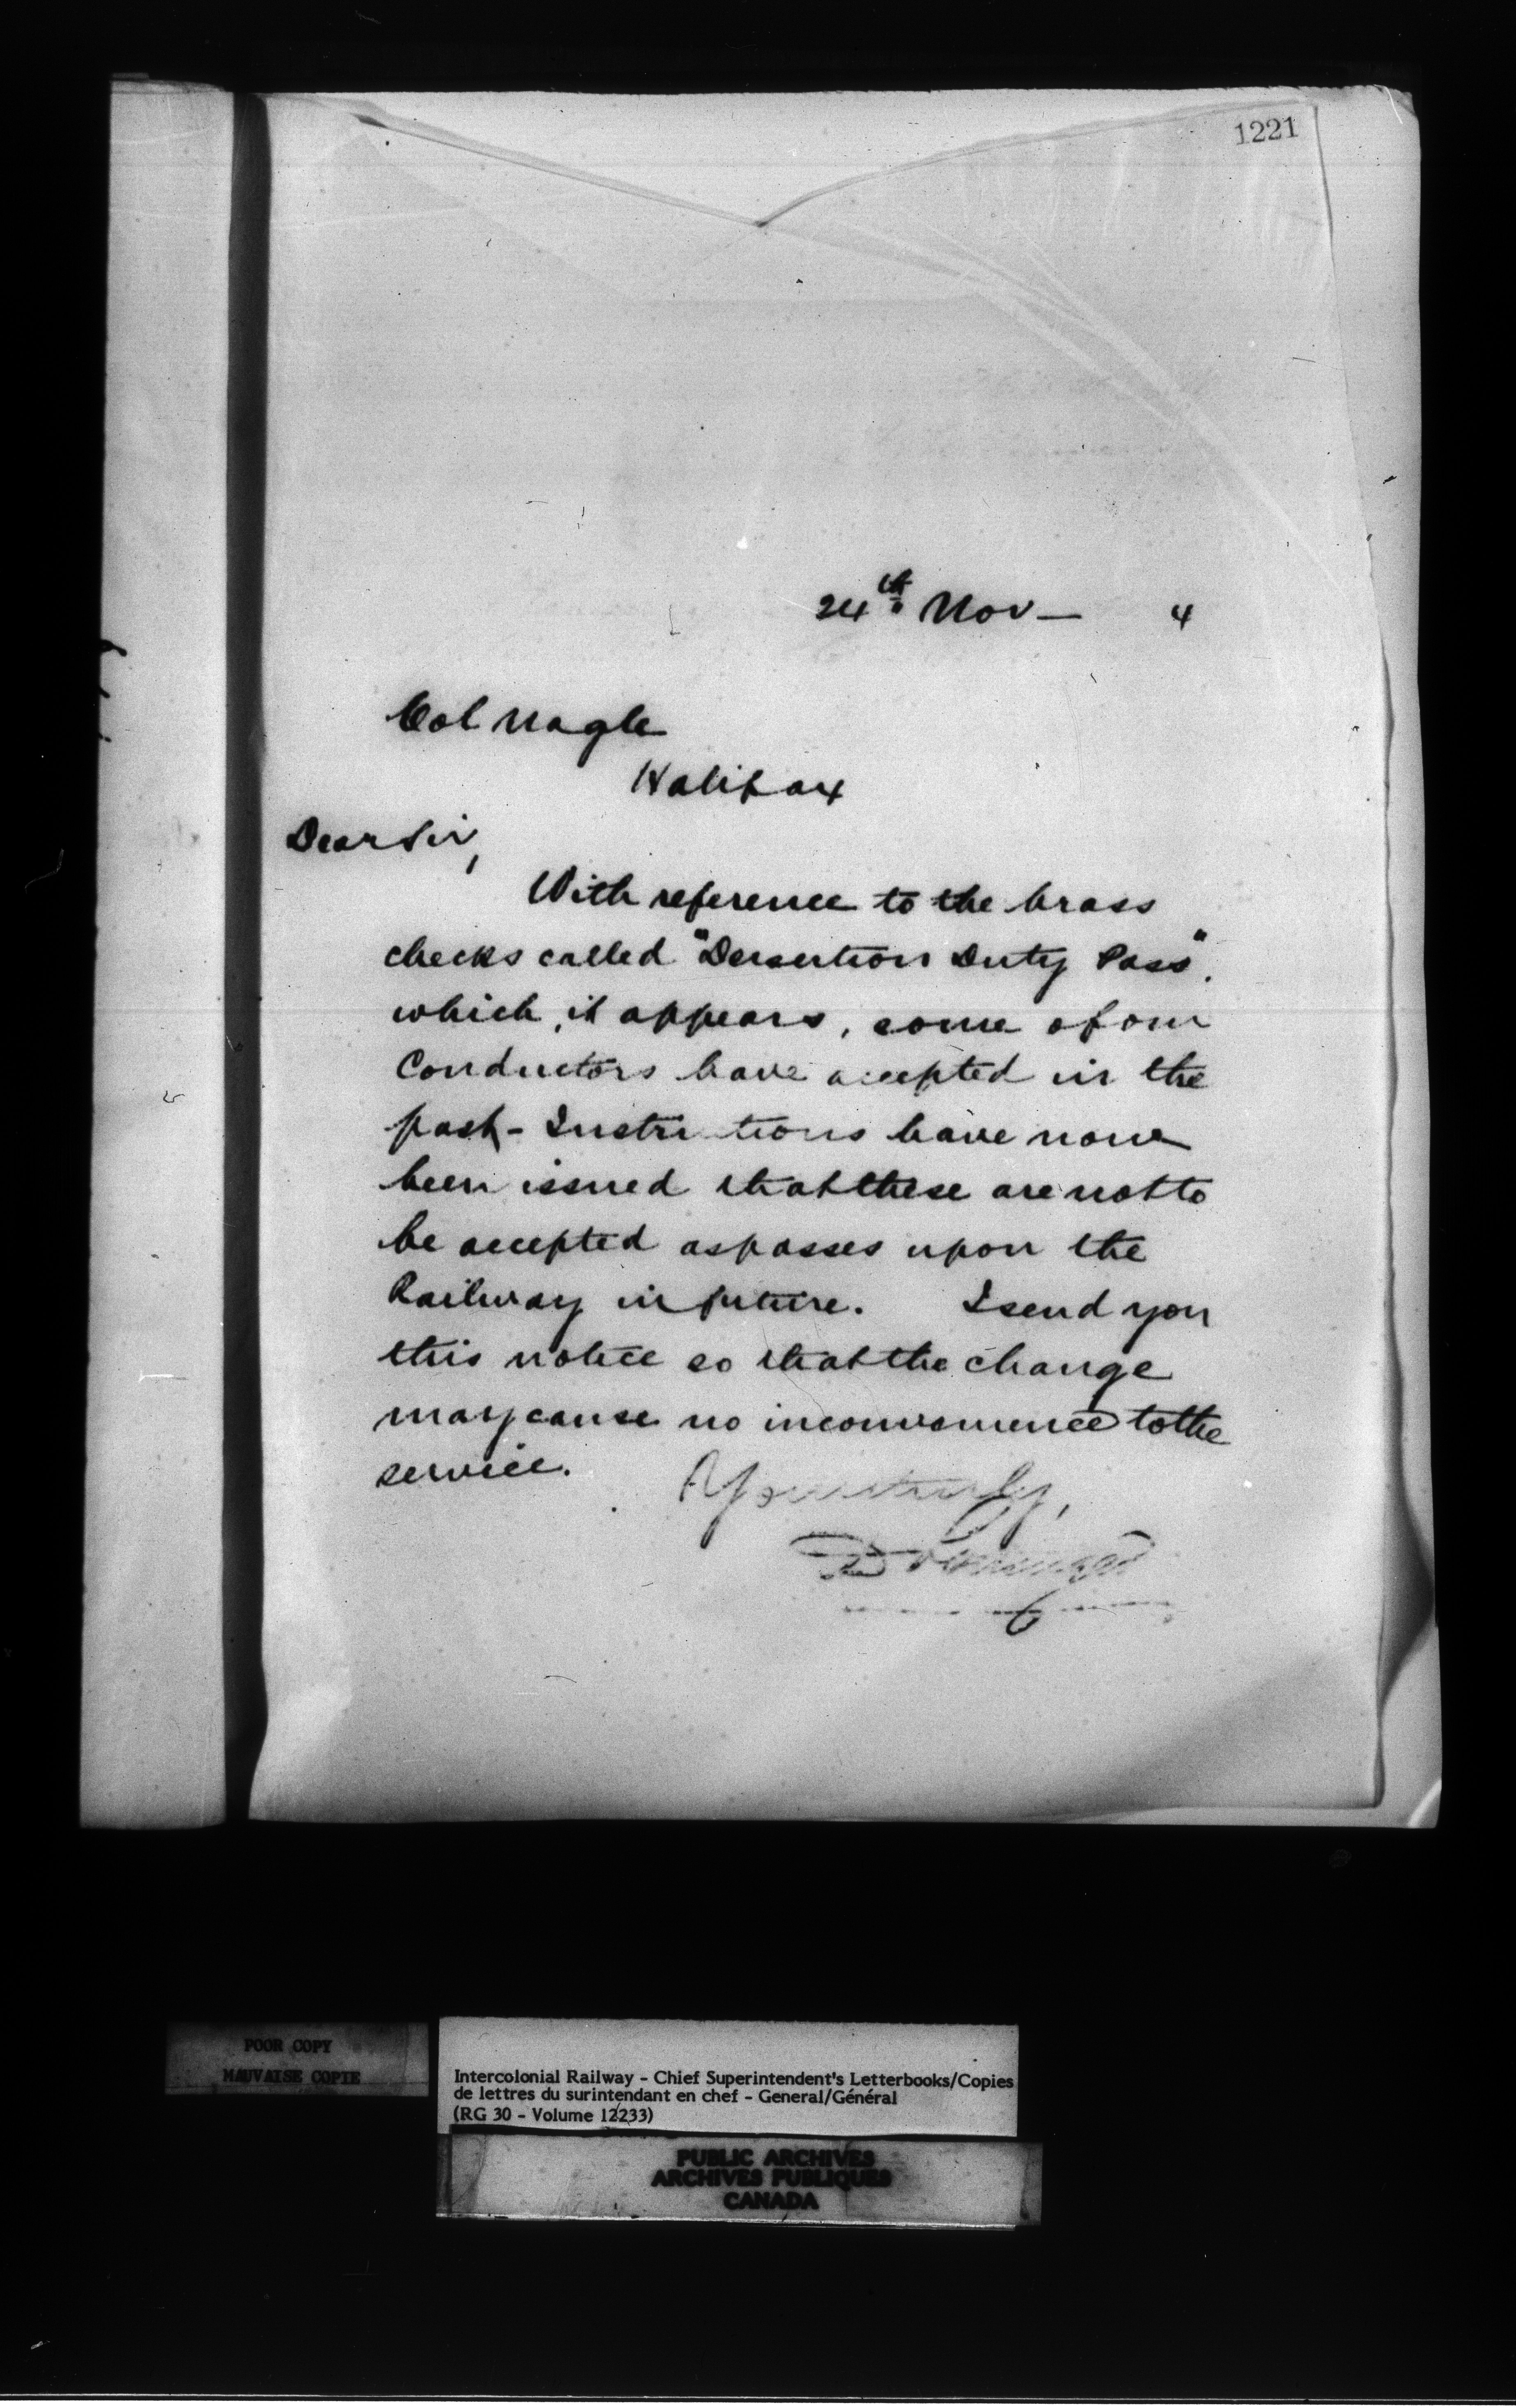 1221
24th Nov — 4
Col Nagle
Halifax
Dear Sir,
With reference to the brass
checks called "Desertion Duty Pass",
which, it appears, some of our
Conductors have accepted in the
past - Instructions have now
been issued that these are not to
be accepted as passes upon the
Railway in future. I send you
this notice so that the change
may cause no inconvenience to the
service.
Yours truly,
POOR COPY
MAUVAISE COPIE
Intercolonial Railway - Chief Superintendent's Letterbooks/Copies
de lettres du surintendant en chef - General/Général
(RG 30 - Volume 12233)
PUBLIC ARCHIVES
ARCHIVES PUBLIQUES
CANADA